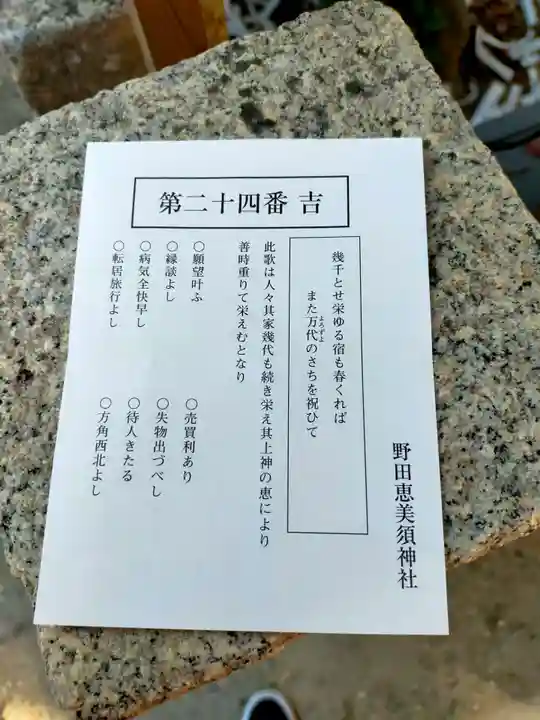 第二十四番 吉
野田恵美須神社
幾千とせ栄ゆる宿も春くれば
また万代のさちを祝ひて
よろずよ
此歌は人々其家幾代も続き栄え其上神の恵により
善時重りて栄えむとなり
〇願望叶ふ
〇縁談よし
〇病気全快早し
〇転居旅行よし
〇売買利あり
〇失物出づべし
〇待人きたる
〇方角西北よし